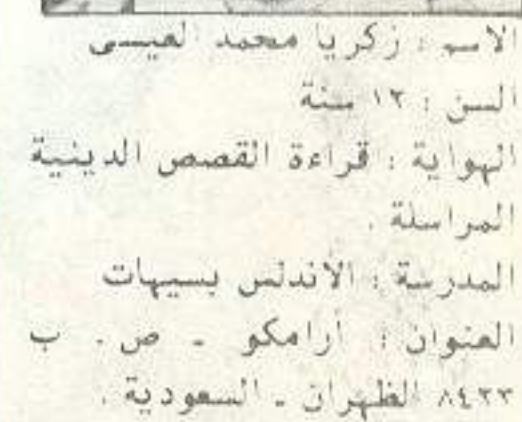 الاسم : زكريا محمد العيسى
السن : ١٢ سنة
الهواية : قراءة القصص الدينية
المراسلة .
المدرسة : الاندلس بسيهات
العنوان : أرامكو - ص . ب
٨٤٣٣ الظهران - السعودية .